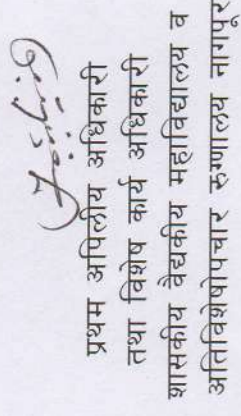 प्रथम अपिलीय अधिकारी
तथा विशेष कार्य अधिकारी
शासकीय वैद्यकीय महाविद्यालय व
अतिविशेषोपचार रुग्णालय नागपूर